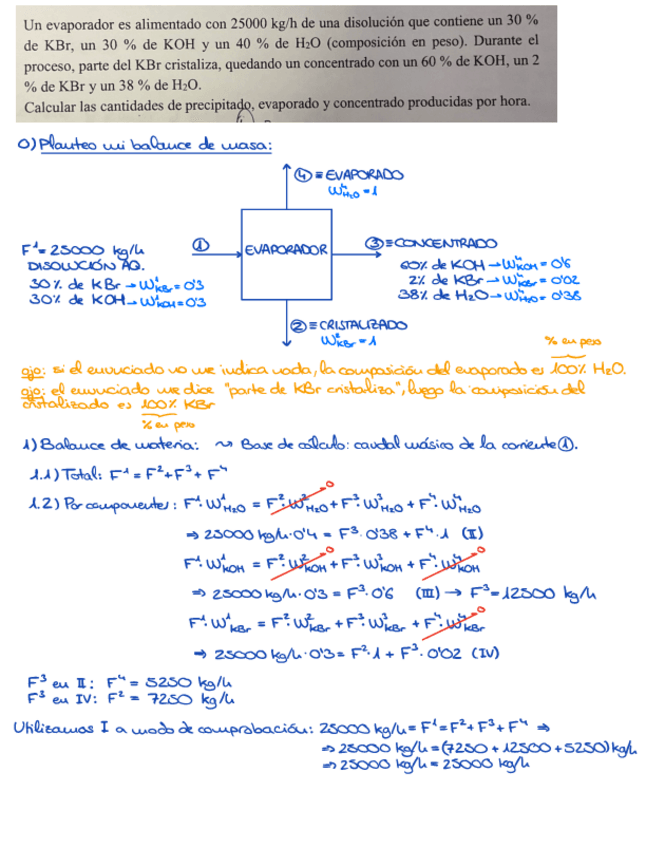 Un evaporador es alimentado con 25000 kg/h de una disolución que contiene un 30 %
de KBr, un 30 % de KOH y un 40 % de H₂O (composición en peso). Durante el
proceso, parte del KBr cristaliza, quedando un concentrado con un 60 % de KOH, un 2
% de KBr y un 38 % de H₂O.
Calcular las cantidades de precipitado, evaporado y concentrado producidas por hora.
0) Planteo mi balance de masa:
④ ≡ EVAPORADO
W⁴H₂O = 1
F¹ = 25000 kg/h
DISOLUCIÓN AQ.
30% de KBr → W¹KBr = 0'3
30% de KOH → W¹KOH = 0'3
①
EVAPORADOR
③ ≡ CONCENTRADO
60% de KOH → W⁴KOH = 0'6
2% de KBr → W⁴KBr = 0'02
38% de H₂O → W⁴H₂O = 0'38
② ≡ CRISTALIZADO
W²KBr = 1
% en peso
ojo: si el enunciado no me indica nada, la composición del evaporado es 100% H₂O.
ojo: el enunciado me dice "parte de KBr cristaliza", luego la composición del
cristalizado es 100% KBr
% en peso
1) Balance de materia: ⤳ Base de cálculo: caudal másico de la corriente ①.
1.1) Total: F¹ = F² + F³ + F⁴
1.2) Por componentes: F¹·W¹H₂O = F²·W²H₂O + F³·W³H₂O + F⁴·W⁴H₂O
0
⇒ 25000 kg/h·0'4 = F³·0'38 + F⁴·1 (II)
F¹·W¹KOH = F²·W²KOH + F³·W³KOH + F⁴·W⁴KOH
0 0
⇒ 25000 kg/h·0'3 = F³·0'6 (III) → F³ = 12500 kg/h
F¹·W¹KBr = F²·W²KBr + F³·W³KBr + F⁴·W⁴KBr
0
⇒ 25000 kg/h·0'3 = F²·1 + F³·0'02 (IV)
F³ en II: F⁴ = 5250 kg/h
F³ en IV: F² = 7250 kg/h
Utilizamos I a modo de comprobación: 25000 kg/h = F¹ = F² + F³ + F⁴ ⇒
⇒ 25000 kg/h = (7250 + 12500 + 5250) kg/h
⇒ 25000 kg/h = 25000 kg/h